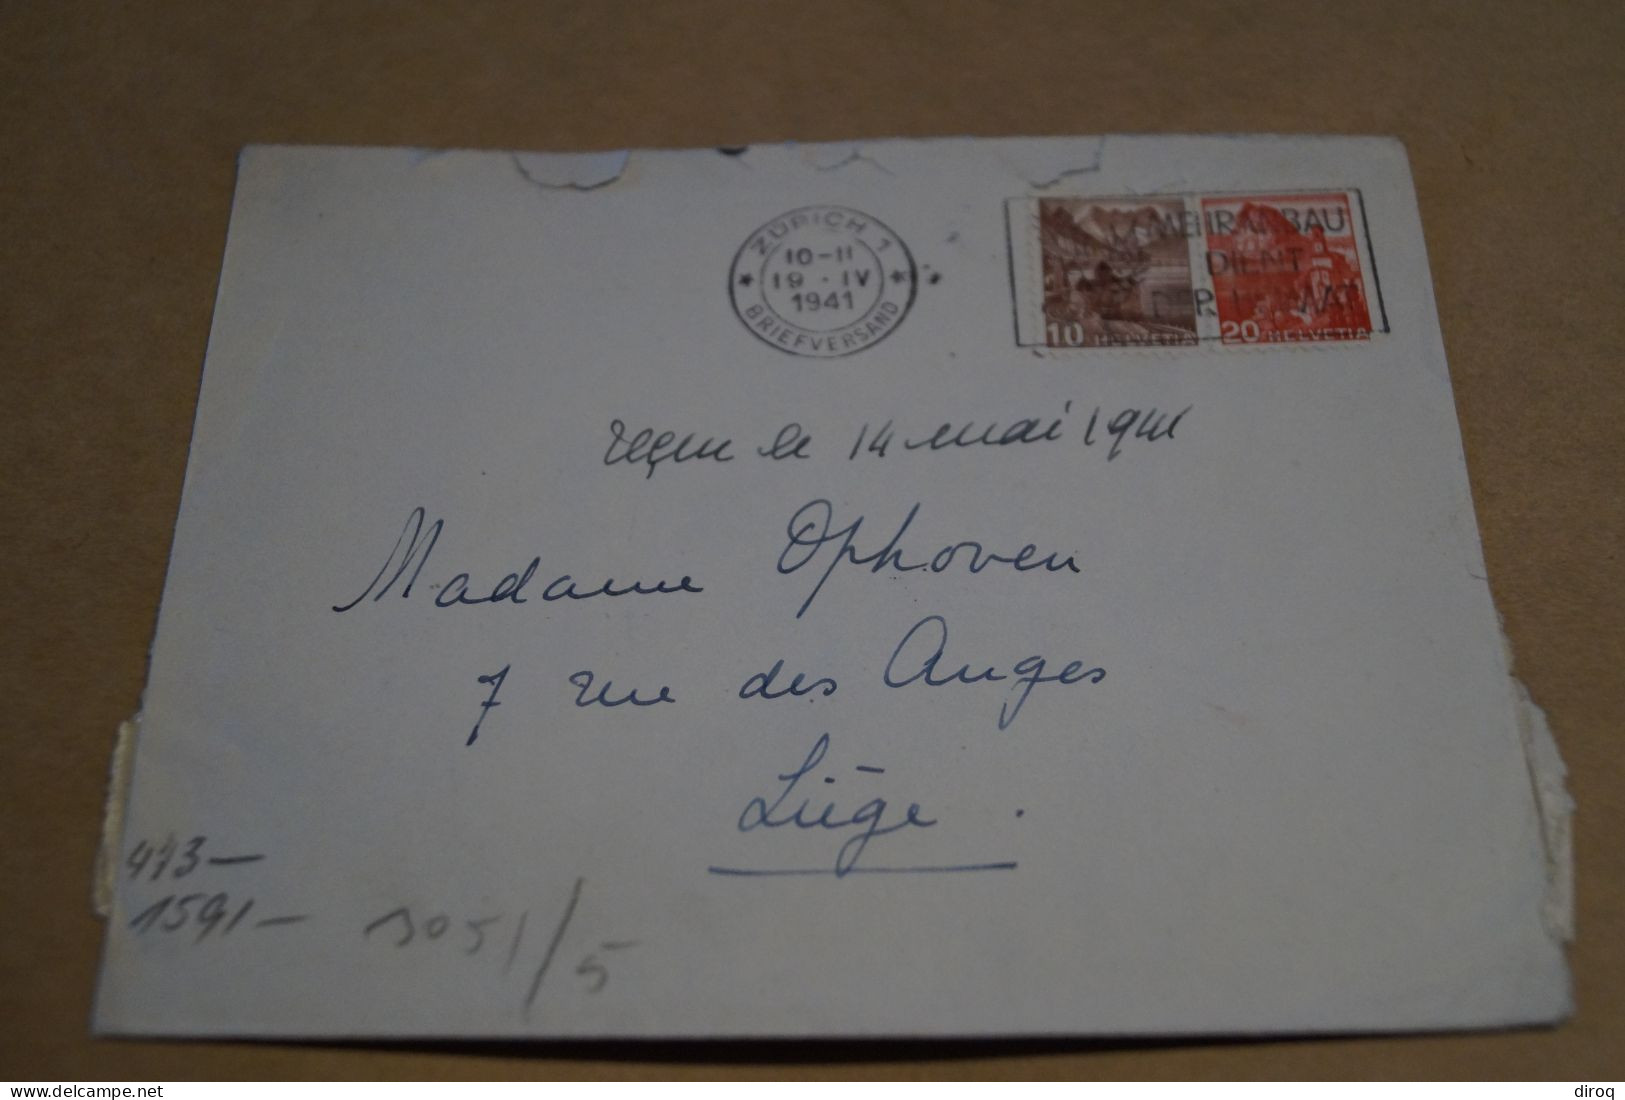 ZÜRICH 1
10-11
19 · IV
1941
BRIEFVERSAND
MEHRANBAU
DIENT
DER HEIMAT
10 HELVETIA
20 HELVETIA
reçu le 14 mai 1941
Madame Ophoven
7 rue des Anges
Liège.
473-
1591-
3051/5
www.delcampe.net
diroq